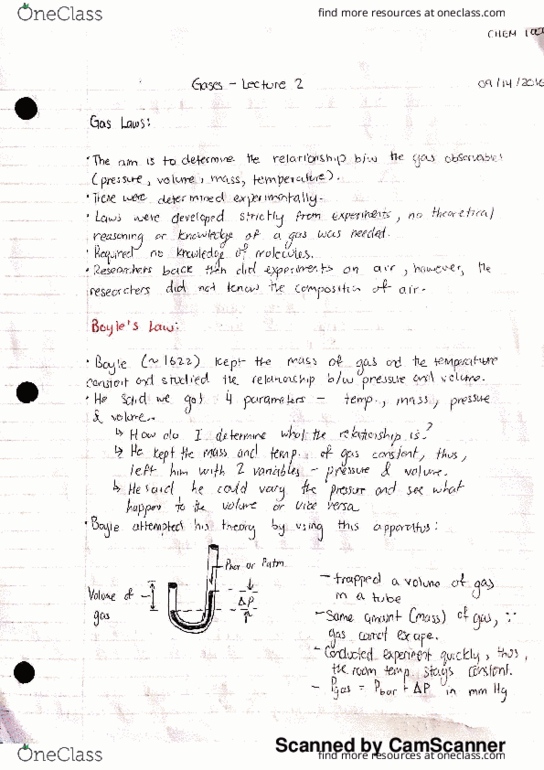 OneClass
find more resources at oneclass.com
CHEM 100
Gases - Lecture 2
09/14/2016
Gas Laws:
• The aim is to determine the relationship b/w the gas observables
(pressure, volume, mass, temperature).
• These were determined experimentally.
• Laws were developed strictly from experiments, no theoretical
reasoning or knowledge of a gas was needed.
• Required no knowledge of molecules.
• Researchers back then did experiments on air, however, the
researchers did not know the composition of air.
Boyle's Law:
• Boyle (~1622) kept the mass of gas and the temperature
constant and studied the relationship b/w pressure and volume.
• He said we got 4 parameters - temp., mass, pressure
& volume.
↳ How do I determine what the relationship is?
↳ He kept the mass and temp. of gas constant, thus,
left him with 2 variables - pressure & volume.
↳ He said he could vary the pressure and see what
happen to the volume or vibe versa
• Boyle attempted his theory by using this apparatus:
Pbar or Patm
Volume of
gas
ΔP
- trapped a volume of gas
in a tube
- Same amount (mass) of gas, ∵
gas cannot escape.
- Conducted experiment quickly, thus,
the room temp stays constant.
- Pgas = Pbar + ΔP in mm Hg
Scanned by CamScanner
OneClass
find more resources at oneclass.com